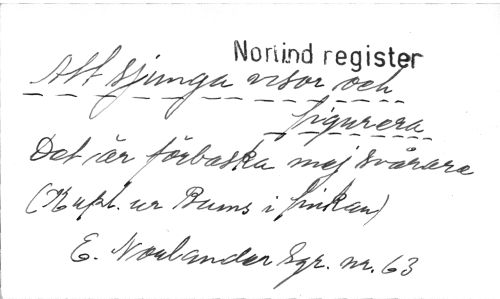 Norlind register
Att sjunga visor och
figurera
Det är förbaska mej svårare
(Kupl. ur Bums i finkan)
E. Norlander Sgr. nr. 63